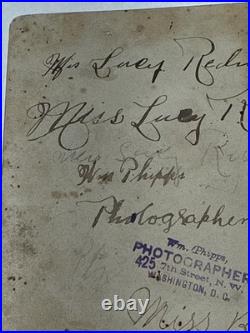 Miss Lucy
Miss Lucy
Wm Phipps
Photographer
Wm. Phipps,
PHOTOGRAPHER
425 7th Street, N. W.
WASHINGTON, D. C.
Miss